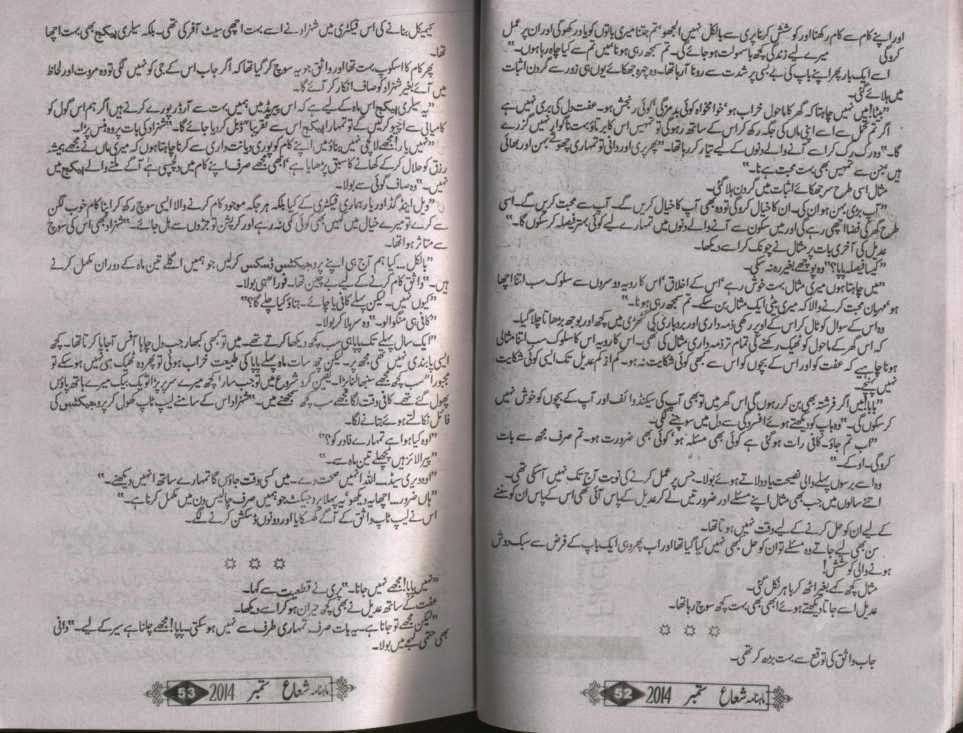 اور اپنے کام سے کام رکھنا اور کوشش کرنا پری سے بالکل نہیں الجھو! تم جتنا میری باتوں کو یاد رکھو گی اور ان پر عمل
کرو گی میرے لیے زندگی کچھ باسہولت ہو جائے گی۔ تم سمجھ رہی ہو نا میں تم سے کیا چاہ رہا ہوں۔"
اسے ایک بار پھر اپنے باپ کی بے بسی پر شدت سے رونا آ رہا تھا۔ وہ چہرہ جھکائے یوں ہی زور سے گردن اثبات
میں ہلائے گئی۔
"بیٹا! میں نہیں چاہتا کہ گھر کا ماحول خراب ہو' خوامخواہ کوئی بدمزگی' کوئی رنجش ہو۔ عفت دل کی بری نہیں ہے
اگر تم تحمل سے اسے اپنی ماں کی جگہ رکھ کر اس کے ساتھ رہو گی تو تمہیں اس کا برتاؤ بہت ناگوار نہیں گزرے
گا۔" وہ رک رک کر اسے آنے والے دنوں کے لیے تیار کر رہا تھا۔ "پھر پری اور دانی تو تمہاری چھوٹے بہن اور بھائی
ہیں' بہن سے تمہیں بھی بہت محبت ہے نا۔"
مثال اسی طرح سر جھکائے اثبات میں گردن ہلا گئی۔
"آپ بڑی بہن ہو ان کی۔ ان کا خیال کرو گی تو وہ بھی آپ کا خیال کریں گے۔ آپ سے محبت کریں گے۔ اسی
طرح گھر کی فضا اچھی رہے گی اور میں سکون سے آنے والے دنوں میں تمہارے لیے کوئی بہتر فیصلہ کر سکوں گا۔"
عدیل کی آخری بات پر مثال نے چونک کر اسے دیکھا۔
"کیسا فیصلہ پاپا؟" وہ پوچھے بغیر رہ نہ سکی۔
"میں چاہتا ہوں میری مثال بہت خوش رہے' اس کے اخلاق' اس کا رویہ دوسروں سے سلوک سب اتنا اچھا
ہو' مہربان محبت کرنے والا کہ میری بیٹی ایک مثال بن سکے۔ تم سمجھ رہی ہو نا۔"
وہ اس کے سوال کو ٹال کر اس کے اوپر رکھی ذمہ داری اور بردباری کی گٹھڑی میں کچھ اور بوجھ بڑھاتا چلا گیا۔
کہ اس گھر کے ماحول کو ٹھیک رکھنے کی تمام تر ذمہ داری مثال کی تھی۔ اس کا رویہ اس کا سلوک سب اتنا مثالی
ہونا چاہیے کہ عفت کو اور اس کے بچوں کو اس سے کبھی کوئی شکایت نہ ہو۔ کم از کم عدیل تک ایسی کوئی شکایت
نہیں پہنچے۔
"پاپا! میں اگر فرشتہ بھی بن کر رہوں گی اس گھر میں تو بھی آپ کی سیکنڈ وائف اور آپ کے بچوں کو خوش نہیں
کر سکوں گی۔" وہ باپ کو دیکھتے ہوئے افسردگی سے دل میں سوچنے لگی۔
"اب تم جاؤ۔ کافی رات ہو گئی ہے کوئی بھی مسئلہ ہو' کوئی بھی ضرورت ہو۔ تم صرف مجھ سے بات
کرو گی۔ اوکے۔"
وہ اسے برسوں پہلے والی نصیحت یاد دلاتے ہوئے بولا۔ جس پر عمل کرنے کی نوبت آج تک نہیں آ سکی تھی۔
اتنے سالوں میں جب بھی مثال اپنے مسئلے اور ضرورتیں لے کر عدیل کے پاس آئی تھی اس کے پاس ان کو سننے
کے لیے ان کو حل کرنے کے لیے وقت نہیں ہوتا تھا۔
سن بھی لیے جاتے وہ مسئلے تو ان کو حل کبھی نہیں کیا گیا تھا اور اب پھر وہی ایک باپ کے فرض سے سبک دوش
ہونے والی کوشش!
مثال کچھ کہے بغیر اٹھ کر باہر نکل گئی۔
عدیل اسے جاتا دیکھتے ہوئے ابھی بھی بہت کچھ سوچ رہا تھا۔
☼ ☼ ☼
جاب واثق کی توقع سے بہت بڑھ کر تھی۔
ماہنامہ شعاع ستمبر 2014 52
کیمیکل بنانے کی اس فیکٹری میں شہزاد نے اسے بہت اچھی سیٹ آفر کی تھی۔ بلکہ سیلری پیکیج بھی بہت اچھا
تھا۔
پھر کام کا اسکوپ بہت تھا اور واثق جو یہ سوچ کر گیا تھا کہ اگر جاب اس کے جی کو نہیں لگی تو وہ مروت اور لحاظ
میں آئے بغیر شہزاد کو صاف انکار کر آئے گا۔
"یہ سیلری پیکیج اس ماہ کے لیے ہے کہ اس پیریڈ میں ہمیں بہت سے آرڈر پورے کرنے ہیں اگر ہم اس گول کو
کامیابی سے اچیو کر لیں گے تو تمہارا پیکیج اس سے تقریباً" ڈبل کر دیا جائے گا۔" شہزاد کی بات پر وہ ہنس پڑا۔
"نہیں یار! مجھے لالچی نہیں بناؤ میں اپنے کام کو پوری دیانت داری سے کرنا چاہتا ہوں کہ میری ماں نے مجھے ہمیشہ
رزق کو حلال کر کے کھانے کا سبق پڑھایا ہے' ابھی مجھے صرف اپنے کام میں دلچسپی ہے' آگے ملنے والے پیکیج میں
نہیں۔" وہ صاف گوئی سے بولا۔
"ویل اینڈ گڈ اور یار ہماری فیکٹری کے کیا بلکہ ہر جگہ موجود کام کرنے والا ایسی سوچ رکھ کر اپنا کام خوب لگن
سے کرے تو میرے خیال میں کہیں بھی کوئی کمی نہ رہے اور کرپشن تو جڑوں سے مل جائے۔" شہزاد بھی اس کی سوچ
سے متاثر ہوا تھا۔
"بالکل... کیا ہم آج ہی اپنے پروجیکٹس ڈسکس کر لیں جو ہمیں اگلے تین ماہ کے دوران مکمل کرنے
ہیں۔" واثق کام کرنے کے لیے بے چین تھا۔ فوراً ہی بولا۔
"کیوں نہیں۔ لیکن پہلے کافی یا چائے۔ بتاؤ کیا چلے گا؟"
"کافی ہی منگوا لو۔" وہ سر ہلا کر بولا۔
"ایک سال پہلے تک پاپا ہی سب کچھ دیکھا کرتے تھے۔ میں تو بس کبھی کبھار جب دل چاہا آفس آ جایا کرتا تھا۔ کچھ
ایسی پابندی نہیں تھی مجھ پر۔ لیکن چھ سات ماہ پہلے پاپا کی طبیعت خراب ہوئی تو پھر وہ ٹھیک ہی نہیں ہو سکے تو
مجبوراً" سب کچھ مجھے سنبھالنا پڑا۔ لیکن شروع میں تو جب سارا کچھ میرے سر پر پڑا تو یک بیک میرے ہاتھ پاؤں
پھول گئے تھے۔ کافی وقت لگا مجھے سب کچھ سمجھنے میں۔" شہزاد اس کے سامنے لیپ ٹاپ کھول کر پروجیکٹس کی
فائل نکالتے ہوئے بتانے لگا۔
"اوہ کیا ہوا ہے تمہارے فادر کو؟"
"پیرالائز ہیں پچھلے تین ماہ سے۔"
"اوہ ویری سیڈ۔ اللہ انہیں صحت دے۔ میں کسی وقت جاؤں گا تمہارے ساتھ انہیں دیکھنے۔"
"ہاں ضرور۔ اچھا یہ دیکھو' یہ پہلا پروجیکٹ جو ہمیں صرف چالیس دن میں مکمل کرنا ہے۔"
اس نے لیپ ٹاپ واثق کے آگے کھسکایا اور دونوں ڈسکشن کرنے لگے۔
☼ ☼ ☼
"نہیں پاپا! مجھے نہیں جانا۔" پری نے قطعیت سے کہا۔
عفت کے ساتھ عدیل نے بھی کچھ حیران ہو کر اسے دیکھا۔
"لیکن مجھے تو جانا ہے۔ یہ بات صرف تمہاری طرف سے نہیں ہو سکتی۔ پاپا! مجھے جانا ہے سیر کے لیے۔" دانی
بھی حتمی لہجے میں بولا۔
ماہنامہ شعاع ستمبر 2014 53